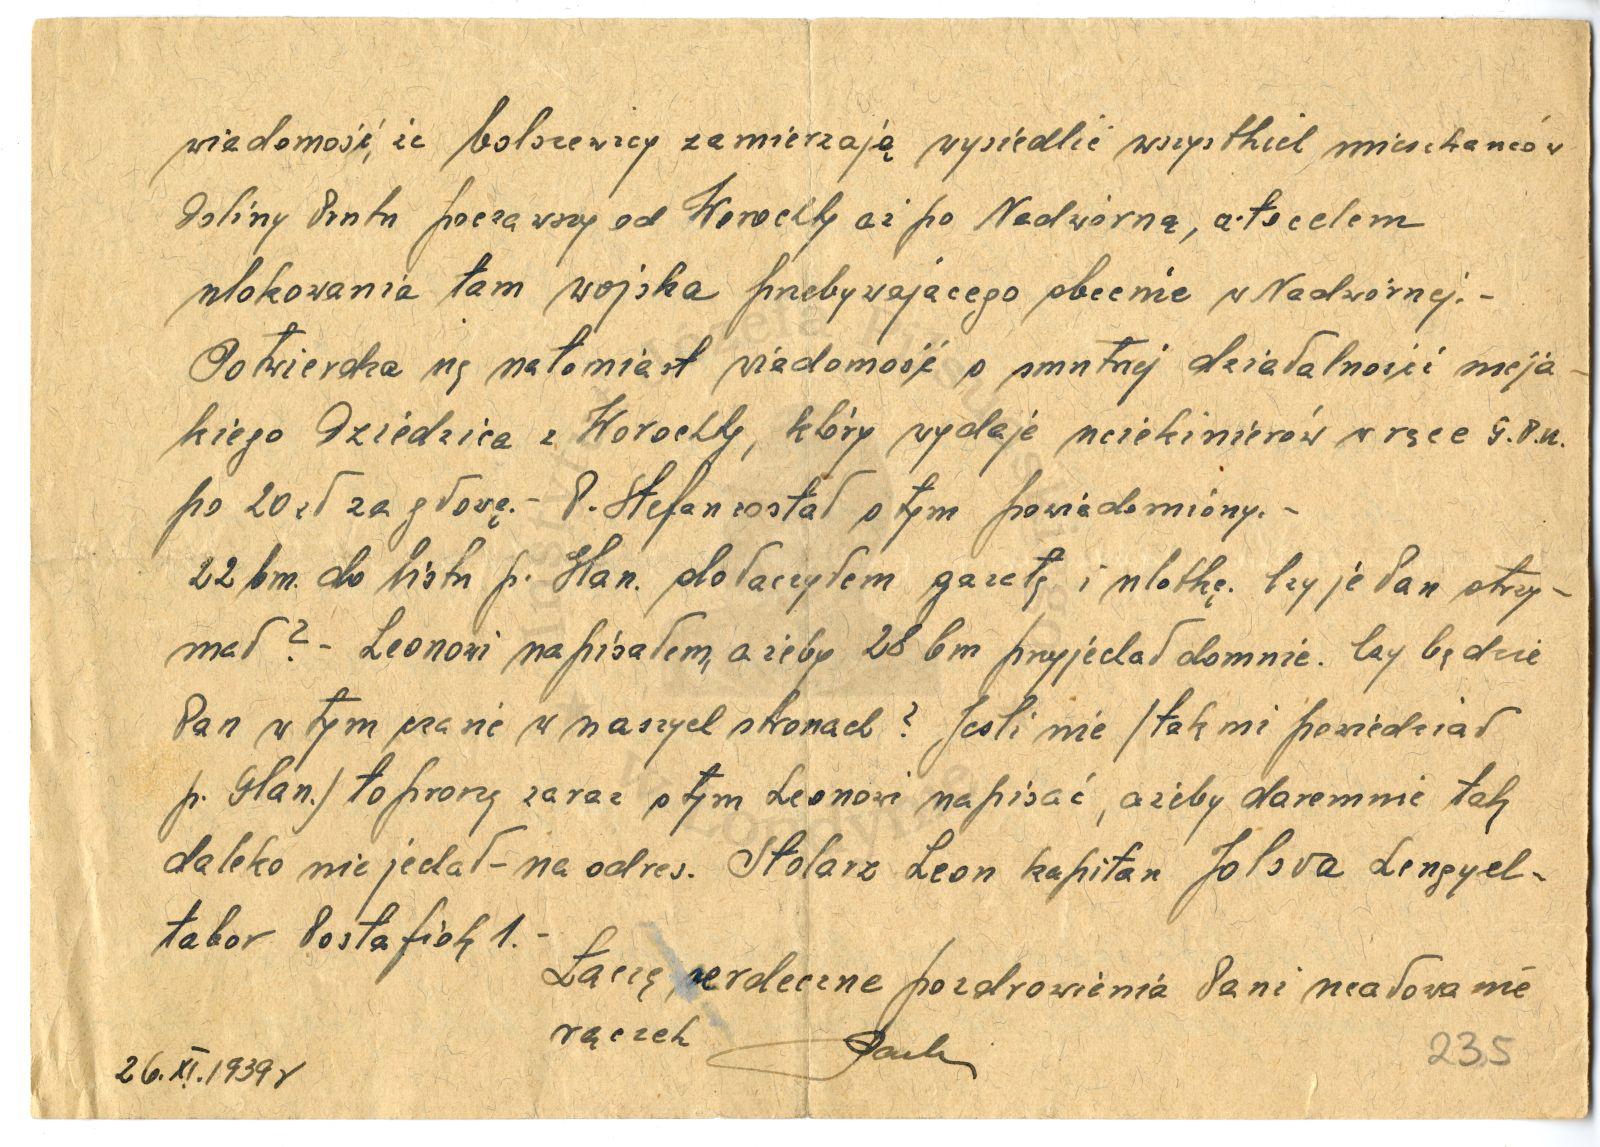 wiadomość, że bolszewicy zamierzają wysiedlić wszystkich mieszkańców
Doliny Prutu począwszy od Worochty aż po Nadwórną, a to celem
ulokowania tam wojska przebywającego obecnie w Nadwórnej. -
Potwierdza się natomiast wiadomość o smutnej działalności nieja-
kiego Dziedzica z Worochty, który wydaje uciekinierów w ręce G.P.U.
po 20 zł za głowę. - P. Stefan został o tym powiadomiony. -
22 bm. do listu p. Han. dołączyłem gazetę i ulotkę. Czy je Pan otrzy-
mał? - Leonowi napisałem, ażeby 28 bm przyjechał do mnie. Czy będzie
Pan w tym czasie w naszych stronach? Jeśli nie /tak mi powiedział
p. Han./ to proszę zaraz o tym Leonowi napisać, ażeby daremnie tak
daleko nie jechał - na adres. Stolarz Leon kapitan Jolsva Lengyel-
tabor Postafiók 1. -
Łączę serdeczne pozdrowienia Pani ucałowanie
rączek
26.XI.1939 r
235
Instytut Józefa Piłsudskiego
w Londynie